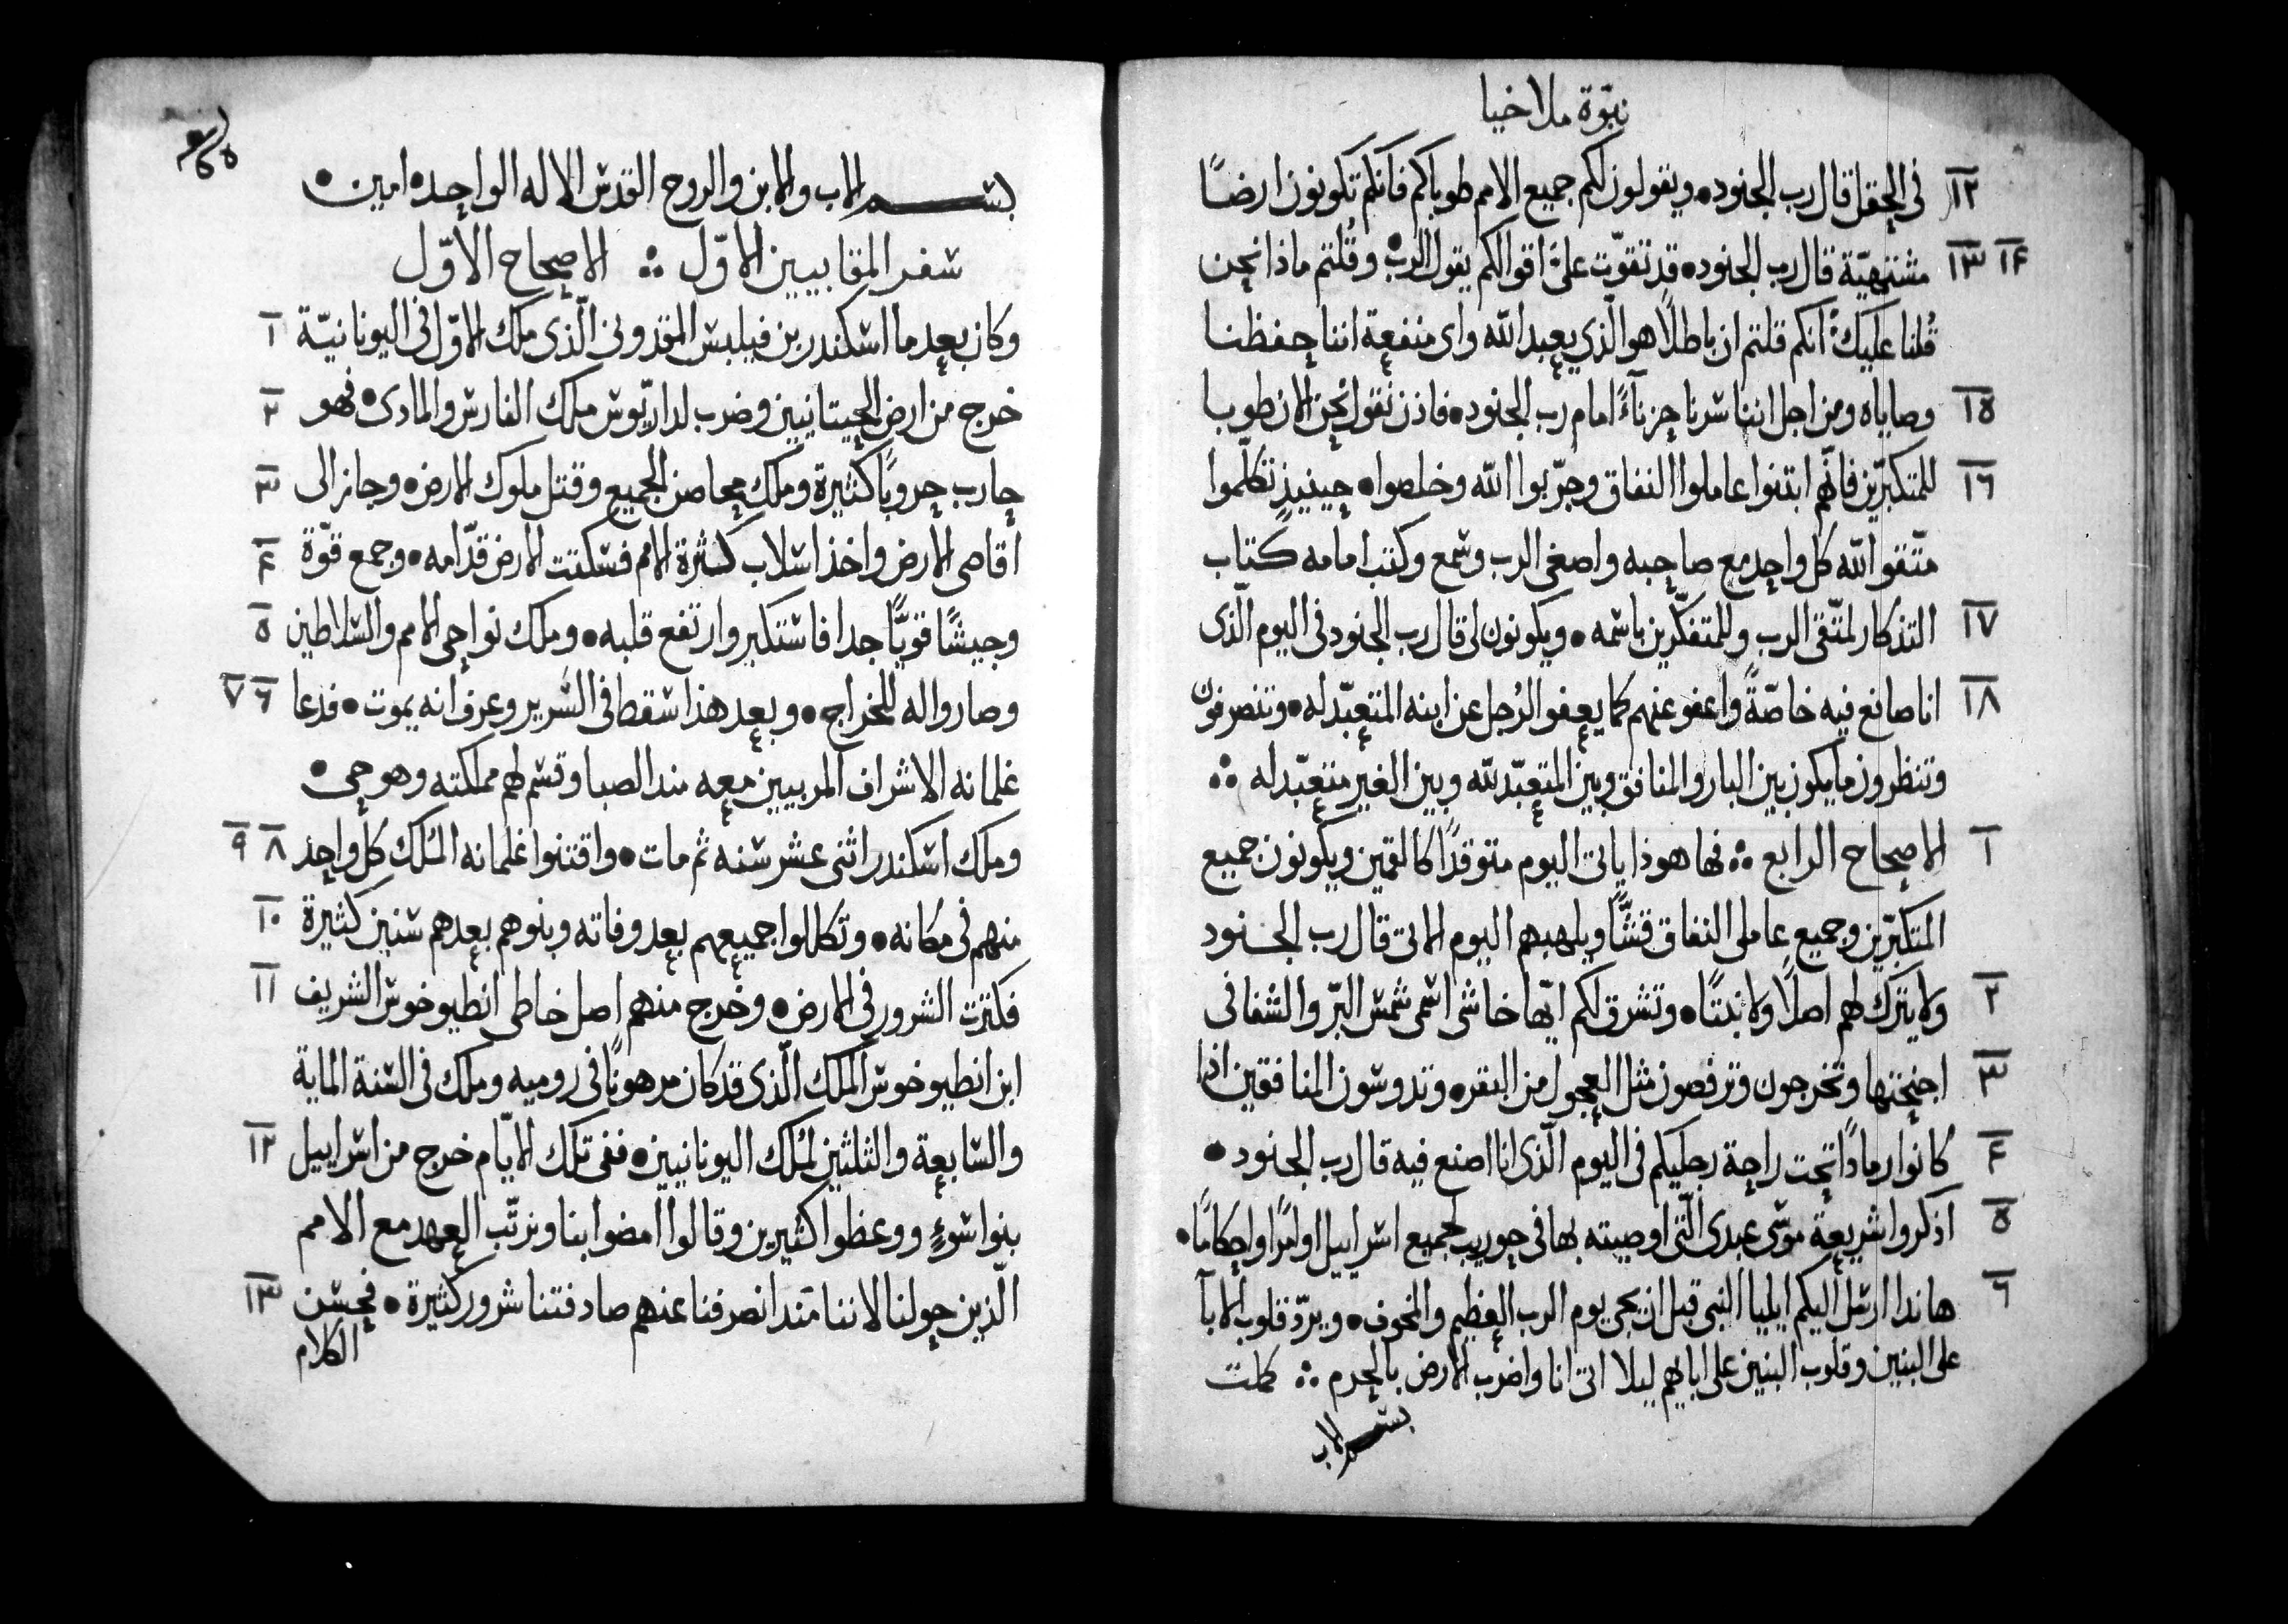 نبوّة ملاخيا
١٢ فى الحقل قال رب الجنود • ويقولون لكم جميع الامم طوباكم فانكم تكونون ارضًا
١٣ ١٤ مشتهيّة قال رب الجنود • قد تقوّت علىّ اقوالكم يقول الرب • وقُلتم ماذا نحن
قُلنا عليك انكم قلتم ان باطلًا هو الّذي يعبد الله واى منفعة اننا حفظنا
١٥ وصاياه ومن اجل اننا سرنا حزناءً امام رب الجنود • فاذن نقول نحن الان طوبا
١٦ للمتكبّرين فانّهم ابتنوا عاملوا النفاق وجرّبوا الله وخلصوا • حينيذٍ تكلّموا
متّقوا الله كل واحد مع صاحبه واصغى الرب وسمع وكتب امامه كتاب
١٧ التذكار لمتّقى الرب وللمتفكّرين باسمه • ويكونون لى قال رب الجنود فى اليوم الّذى
١٨ انا صانع فيه خاصّةً واعفو عنهم كما يعفو الرُجل عن ابنه المتعبّد له • وتنصرفون
وتنظرون ما يكون بين البار والمنافق وبين المتعبّد لله وبين الغير متعبّد له ∴
١ الاصحاح الرابع ∴ فها هوذا ياتى اليوم متوقدًا كالقمين ويكونون جميع
المتكبّرين وجميع عاملى النفاق قشًّا ويلهبهم اليوم الاتى قال رب الجنود
٢ ولا يترك لهم اصلًا ولا نبتًا • وتشرق لكم ايّها خاشى اسمى شمس البرّ والشفا فى
٣ اجنحتها وتخرجون وترفصون مثل العجول من البقر • وتدوسون المنافقين اذا
٤ كانوا رمادًا تحت راحة رجليكم فى اليوم الّذى انا اصنع فيه قال رب الجنود •
٥ اذكروا شريعة موسى عبدى الّتى اوصيته بها فى حوريب لجميع اسراييل اوامرًا واحكامًا •
٦ هانذا ارسل اليكم ايليا النبى قبل ان يجى يوم الرب العظيم والمخوف • ويردّ قلوب الابآ
على البنين وقلوب البنين على ابايهم ليلا اتى انا واضرب الارض بالحرم ∴ كملت
بسم الاب
بسم الاب والابن والروح القدس الاله الواحد • امين •
سفر المقابيين الاوّل ∴ الاصحاح الاوّل
١ وكان بعد ما اسكندر بن فيلبس المقدونى الّذى ملك الاوّل فى اليونانيّة
٢ خرج من ارض الحيتانيين وضرب لداريّوس ملك الفارس والمادى • فهو
٣ حارب حروبًا كثيرة وملك محاصن الجميع وقتل ملوك الارض • وجاز الى
٤ اقاصى الارض واخذ اسلاب كثرة الامم فسكتت الارض قدّامه • وجمع قوّة
٥ وجيشًا قويًّا جدا فاستكبر وارتفع قلبه • وملك نواحى الامم والسلاطين
٦ ٧ وصاروا له للخراج • وبعد هذا سقط فى السّرير وعرف انه يموت • فدعا
غلمانه الاشراف المربيين معه مند الصبا وقسم لهم مملكته وهو حى •
٨ ٩ وملك اسكندر اثنى عشر سنه ثم مات • واقتنوا غلمانه المُلك كلّ واحد
١٠ منهم فى مكانه • وتكللوا جميعهم بعد وفاته وبنوهم بعدهم سنين كثيرة
١١ فكثرت الشرور فى الارض • وخرج منهم اصل خاطى انطيوخوس الشريف
ابن انطيوخوس الملك الّذى قد كان مرهونًا فى روميه وملك فى السّنة الماية
١٢ والسّابعة والثلثين لمُلك اليونانيين • ففى تلك الايّام خرج من اسراييل
بنوا سُوءٍ ووعظوا كثيرين وقالوا امضوا بنا ونرتّب العهد مع الامم
١٣ الّذين حولنا لاننا مَند انصرفنا عنهم صادفتنا شرور كثيرة • فحسن
الكلام